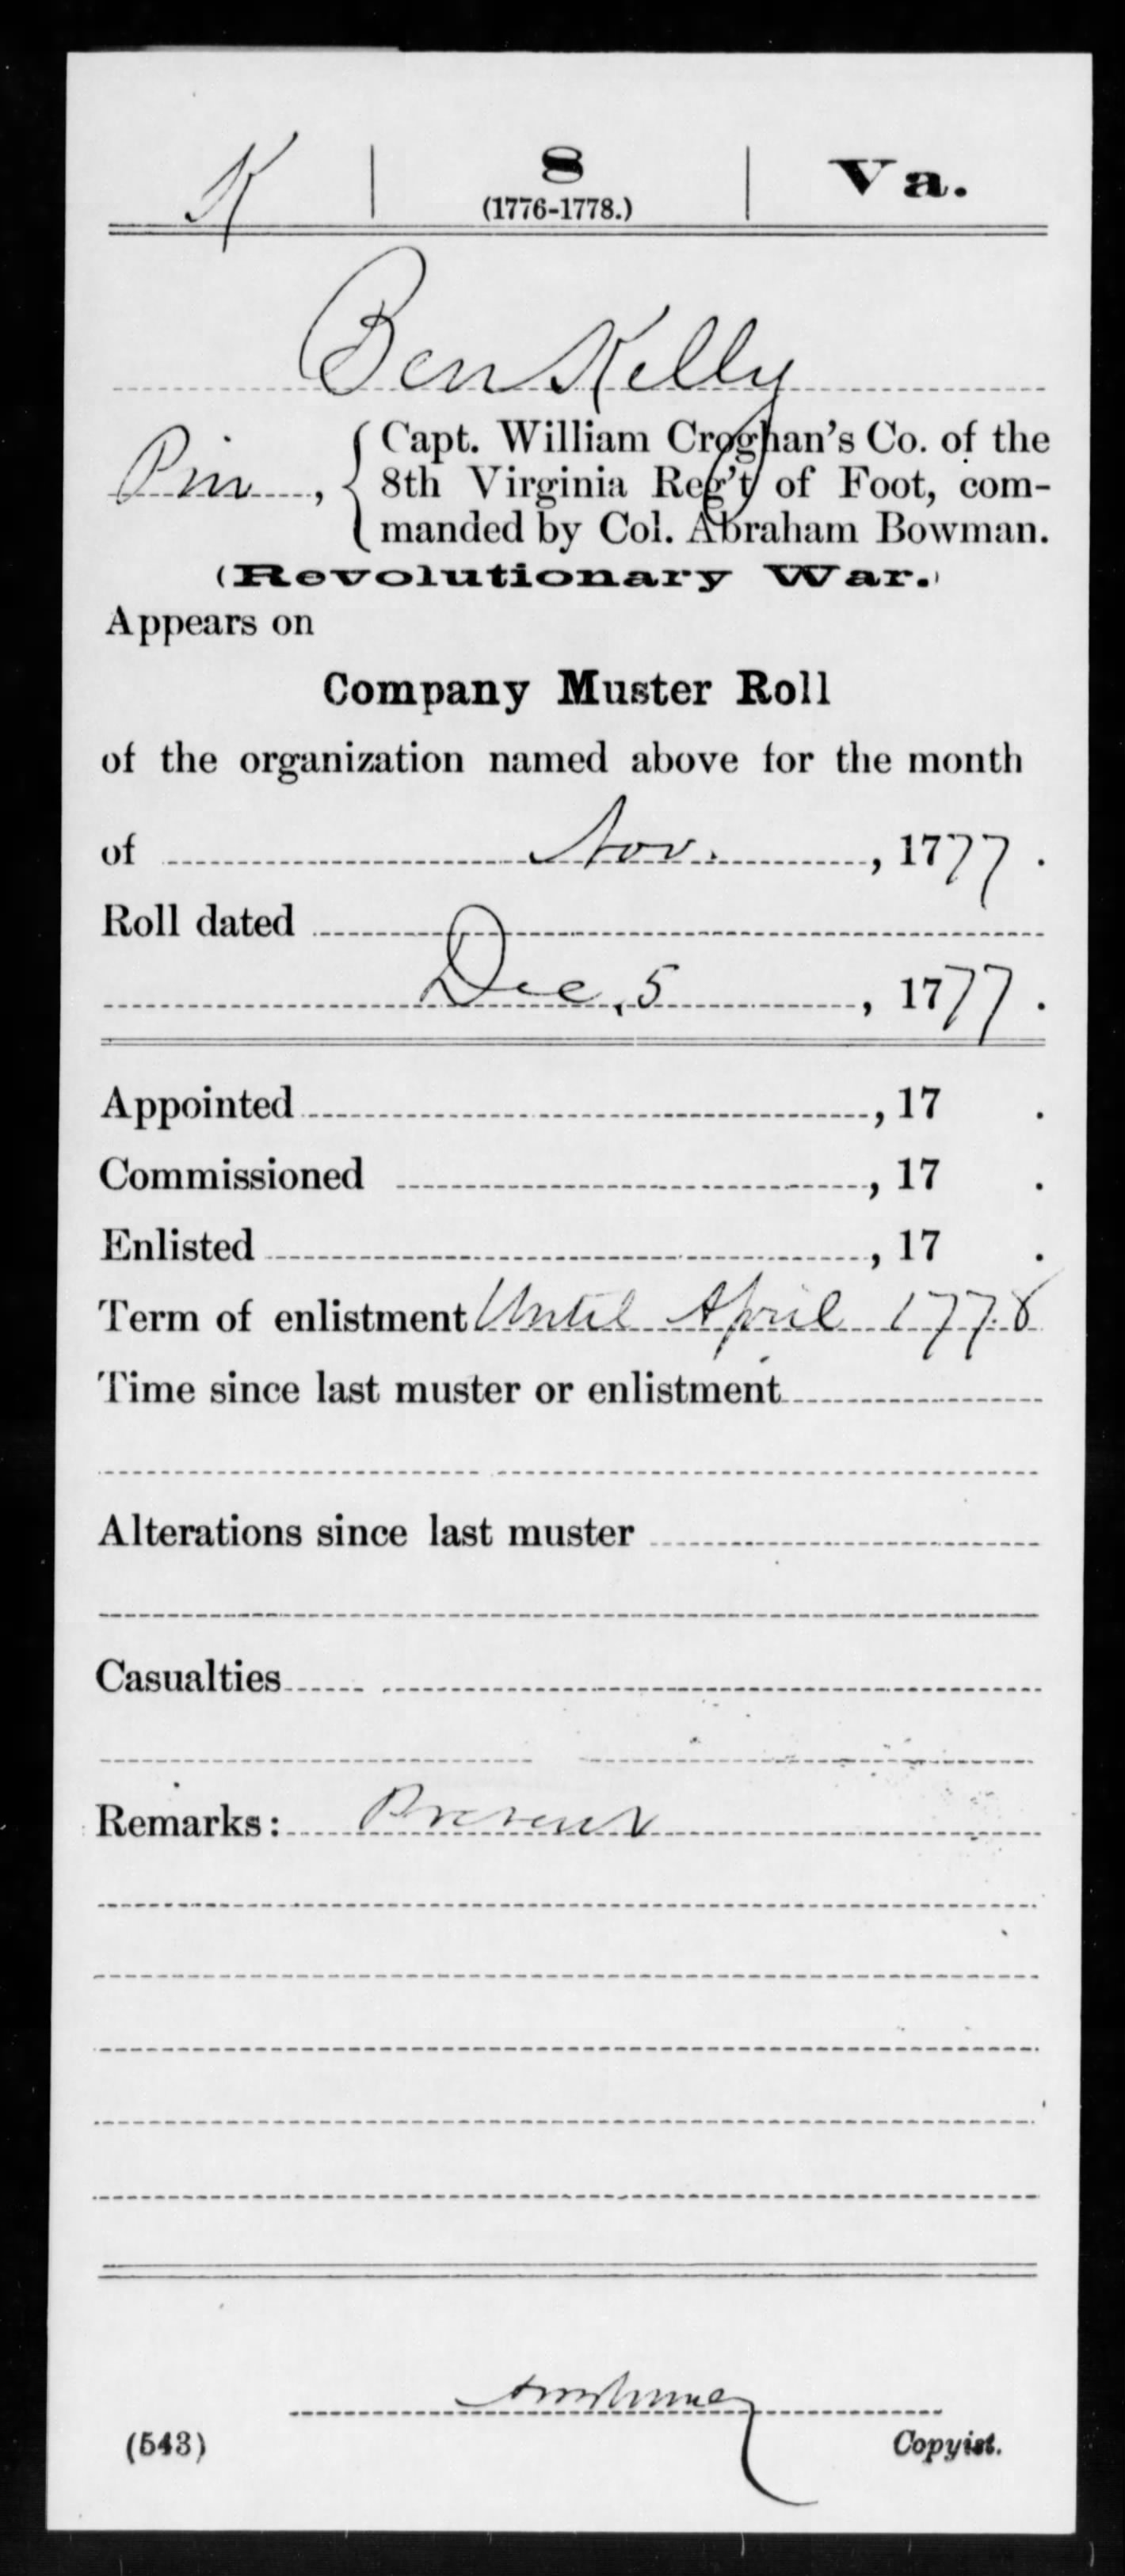 K | 8 | Va.
(1776-1778.)
Ben Kelly
Priv, { Capt. William Croghan's Co. of the
8th Virginia Reg't of Foot, com-
manded by Col. Abraham Bowman.
(Revolutionary War.)
Appears on
Company Muster Roll
of the organization named above for the month
of Nov., 1777.
Roll dated
Dec. 5, 1777.
Appointed, 17 .
Commissioned, 17 .
Enlisted, 17 .
Term of enlistment Until April 1778
Time since last muster or enlistment
Alterations since last muster
Casualties
Remarks: Present
(543)
Copyist.